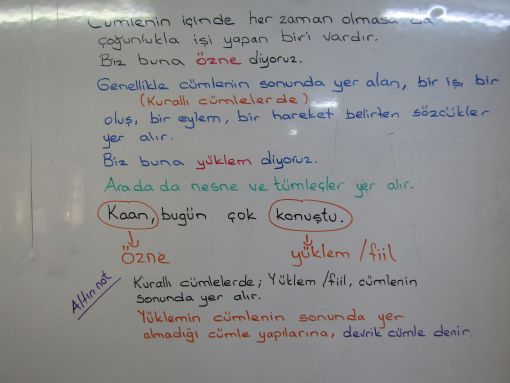 Cümlenin içinde her zaman olmasa da
çoğunlukla işi yapan biri vardır.
Biz buna özne diyoruz.
Genellikle cümlenin sonunda yer alan, bir iş, bir
(Kurallı cümlelerde)
oluş, bir eylem, bir hareket belirten sözcükler
yer alır.
Biz buna yüklem diyoruz.
Arada da nesne ve tümleçler yer alır.
Kaan, bugün çok konuştu.
özne yüklem/fiil
Altın not
Kurallı cümlelerde; Yüklem/fiil, cümlenin
sonunda yer alır.
Yüklemin cümlenin sonunda yer
almadığı cümle yapılarına, devrik cümle denir.